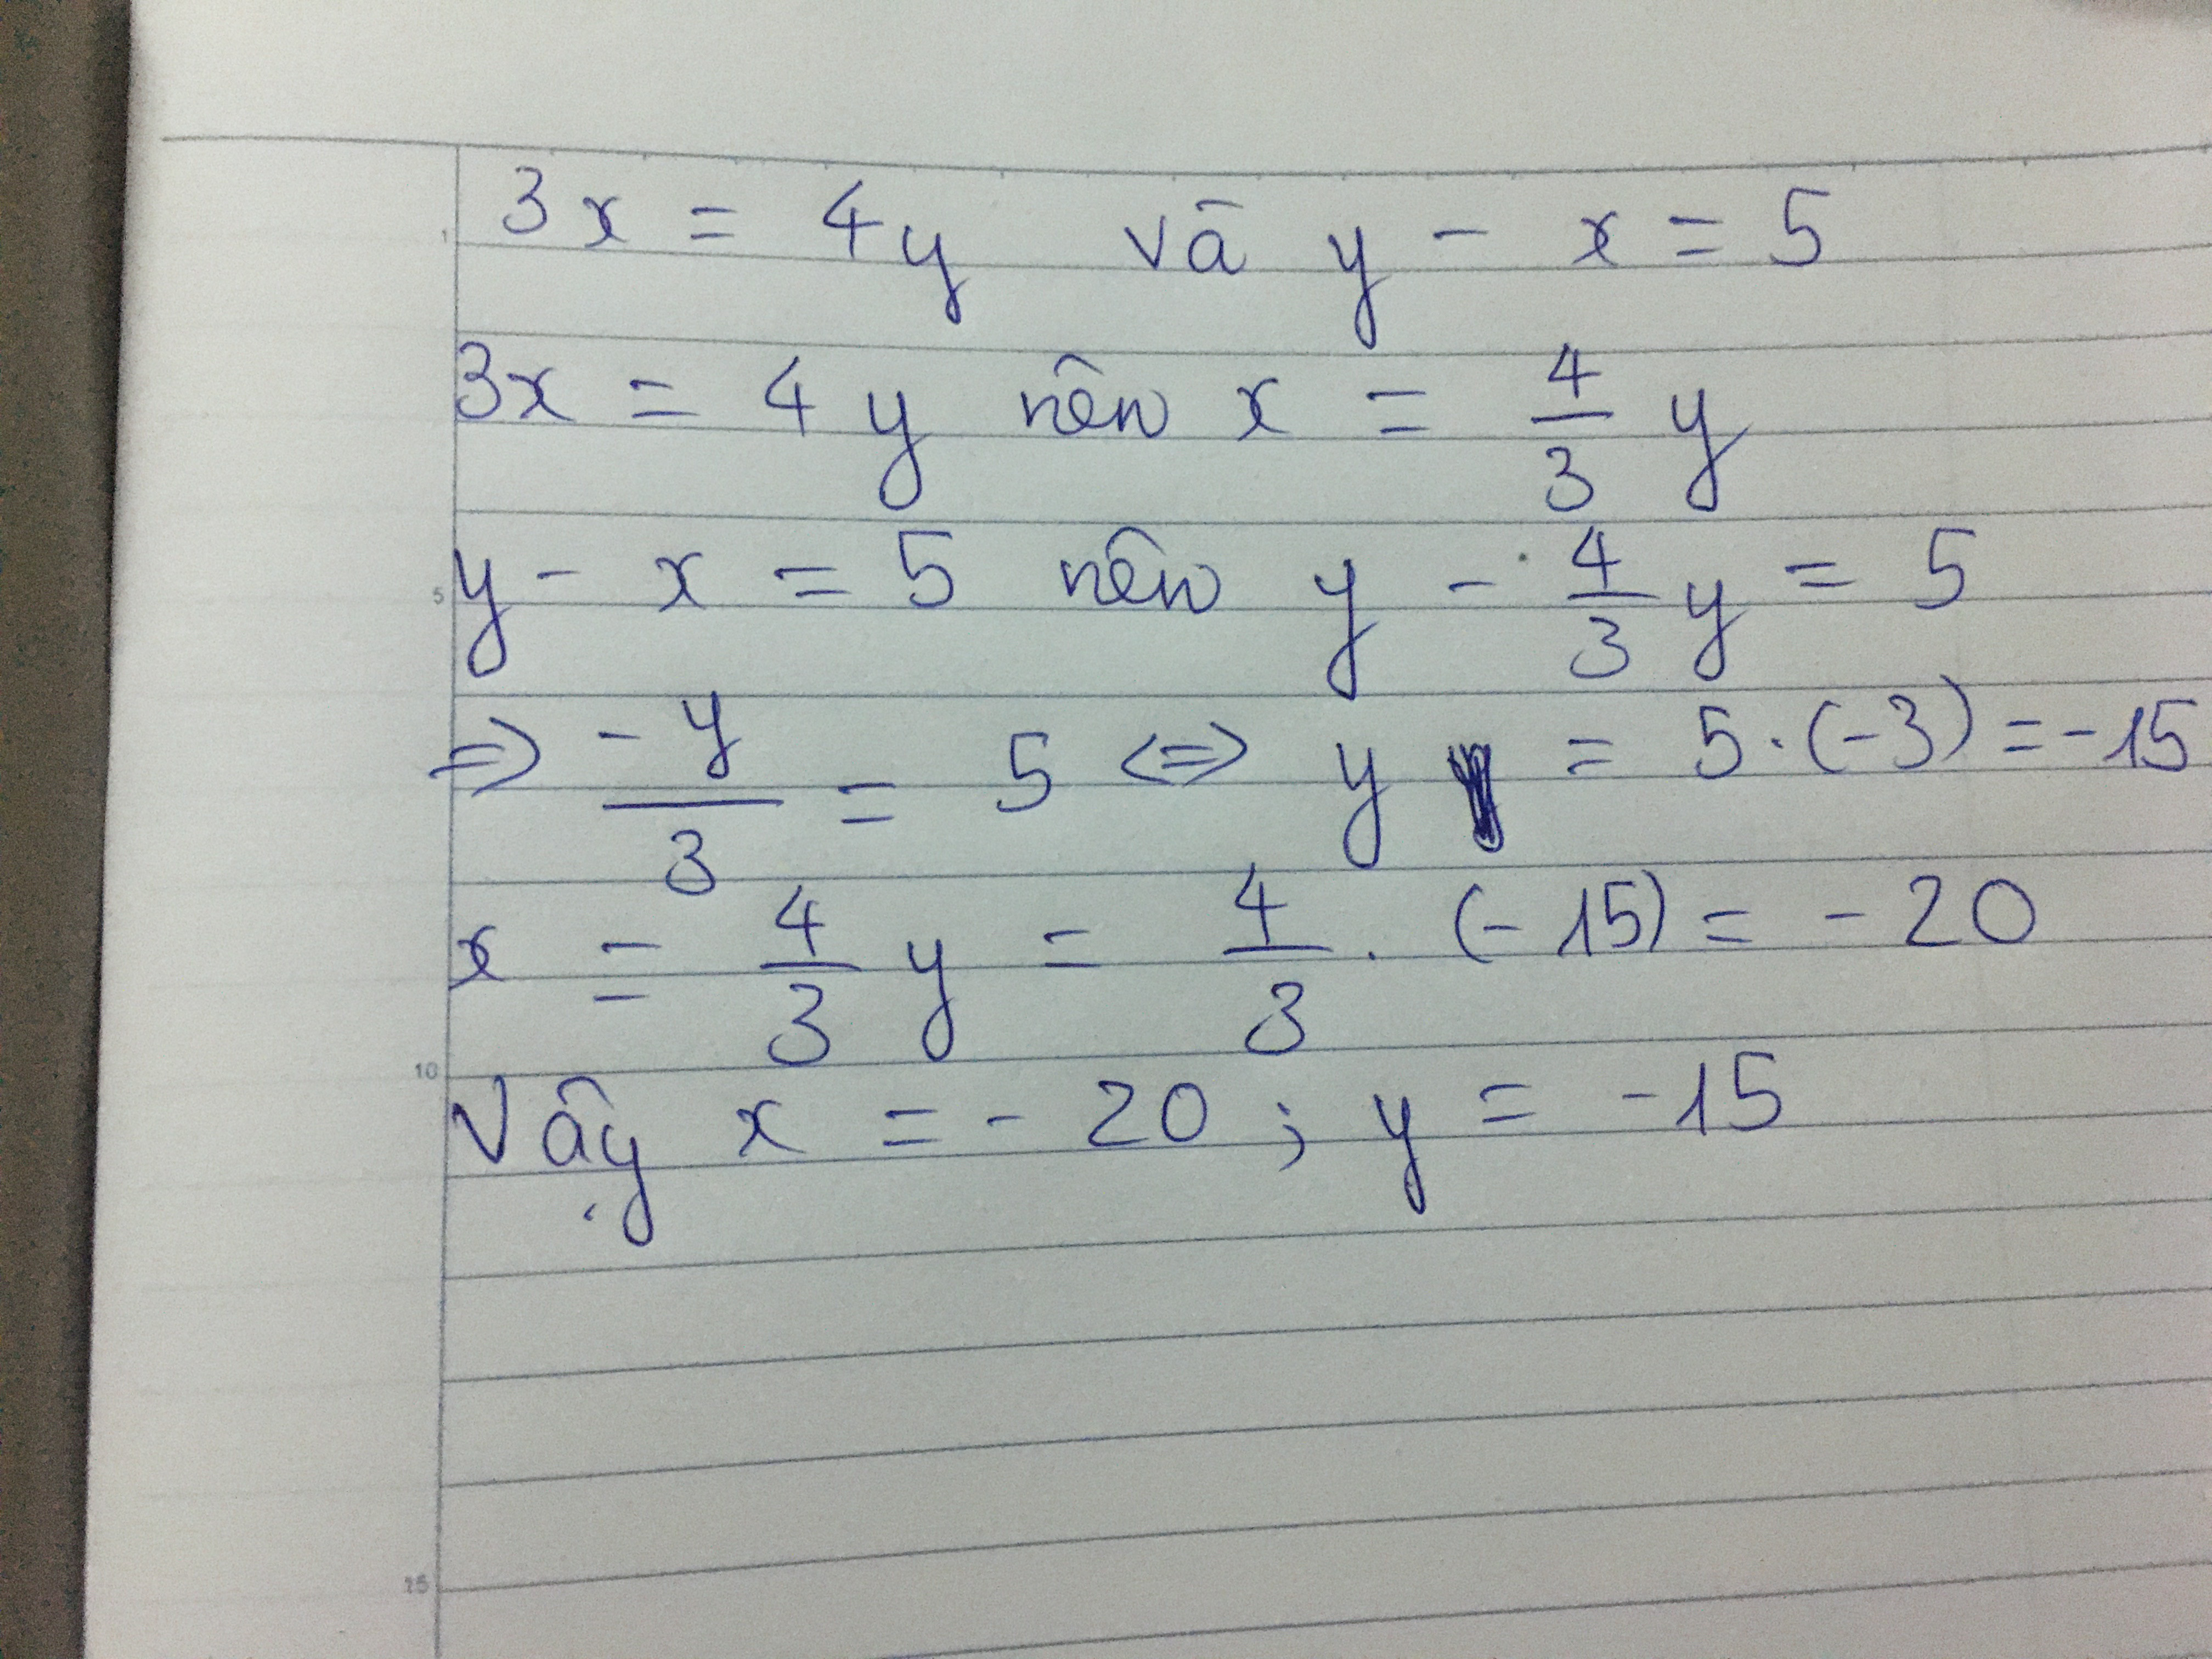 3x = 4y và y - x = 5
3x = 4y nên x = 4/3 y
y - x = 5 nên y - 4/3 y = 5
=> -y/3 = 5 <=> y = 5 . (-3) = -15
x = 4/3 y = 4/3 . (-15) = -20
Vậy x = -20 ; y = -15
1
5
10
15